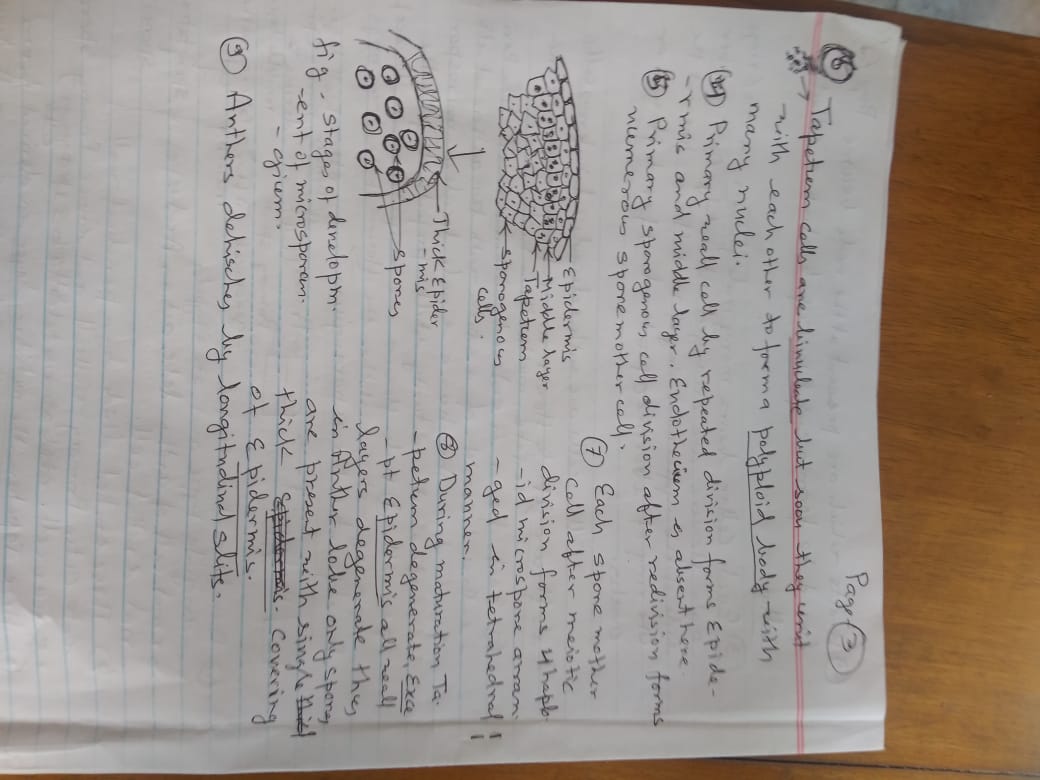 Page (3)
(6) → Tapetum cells are binucleate but soon they unit
-with each other to form a polyploid body -with
many nuclei.
Primary wall cell by repeated division forms Epide-
-rmis and middle layer. Endothecium is absent here
Primary sporogenous cell division after redivision forms
numerous spore mother cell.
Epidermis
Middle layer
Tapetum
sporogenous
cells.
Thick Epider
-mis
spores
fig - Stages of developm
-ent of microsporan-
-gium.
(7) Each spore mother
cell after meiotic
division forms 4 haplo-
-id microspore arran
-ged in tetrahedral
manner.
(8) During maturation Ta-
-petum degenerate. Exce
-pt Epidermis all wall
layers degenerate thus,
in Anther lobe only spores
are present with single
thick Covering
of Epidermis.
(9) Anthers dehisches by longitudinal slits.